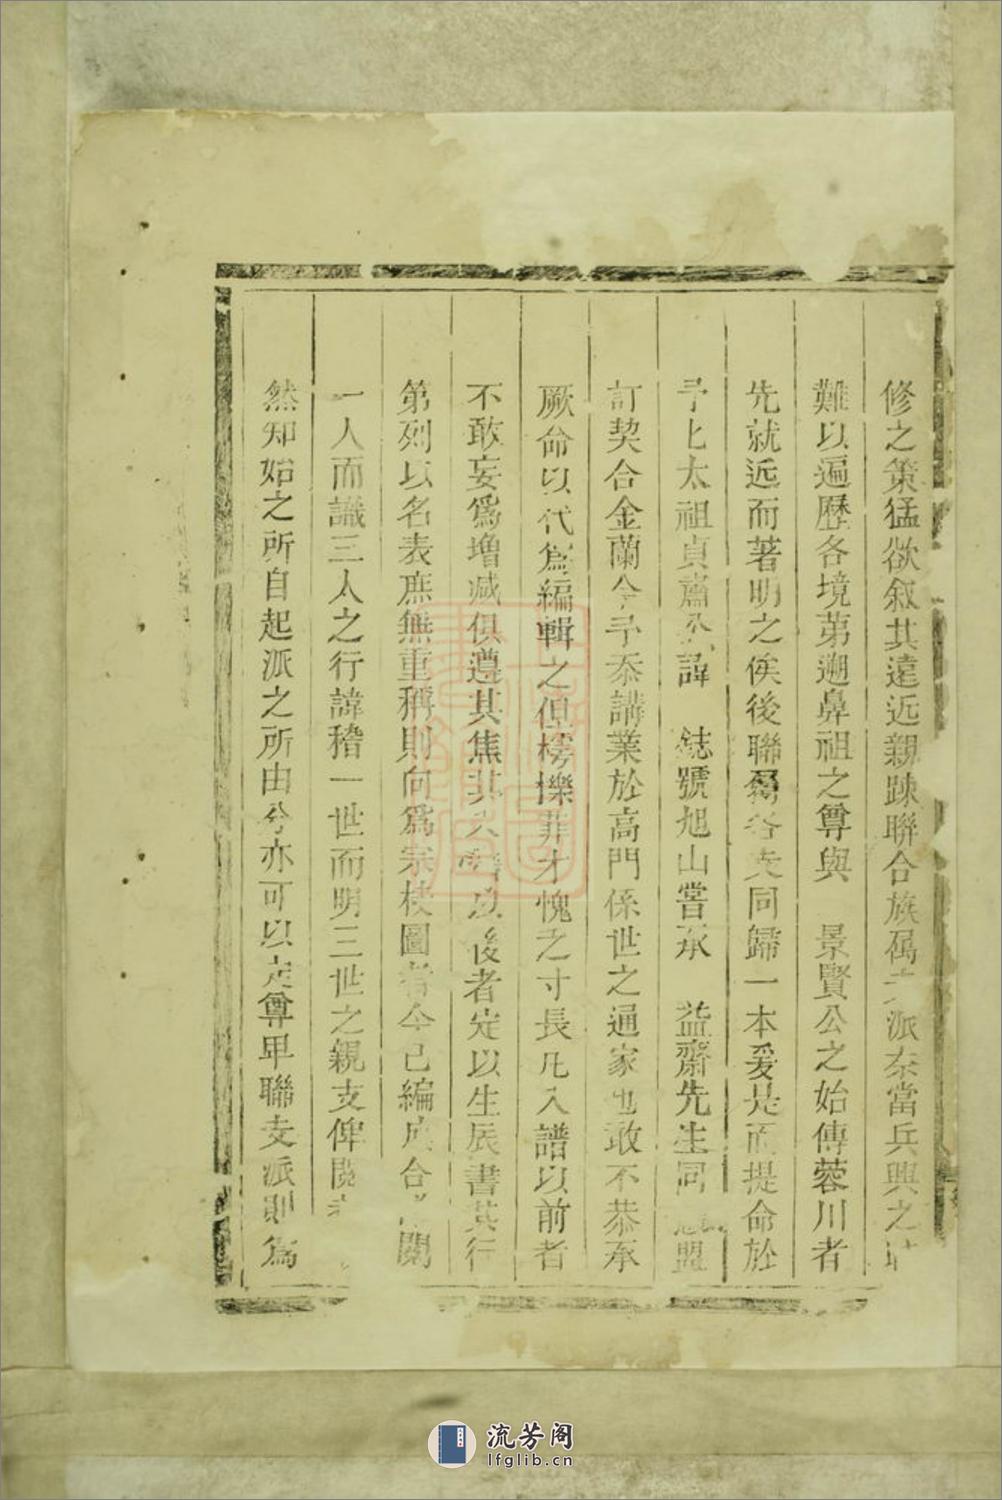 修之策猛欲叙其遠近親踈聯合族属支派奈當兵興之
難以遍歷各境第遡鼻祖之尊與　景賢公之始傳蓉川者
先就近而著明之俟後聯屬各支同歸一本爰是而提命於
予七太祖貞齋公諱　鋕號旭山嘗承　益齋先生同　盟
訂契合金蘭今予忝講業於高門係世之通家也敢不恭承
厥命以代爲編輯之但樗櫟菲才愧乏寸長凡入譜以前者
不敢妄爲增减俱遵其舊其入譜以後者定以生辰書其行
第列以名表庶無重稱則向爲宗枝圖者今已編成合
一人而識三人之行諱稽一世而明三世之親支俾閱者
然知始之所自起派之所由分亦可以定尊卑聯支派則爲
流芳阁
lfglib.cn